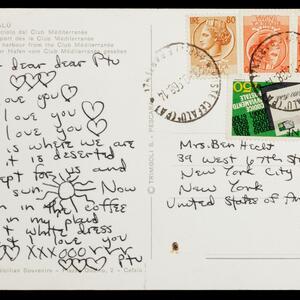 ALÙ
dal Club Méditerranée
port dès le Club Méditerranée
harbour from the Club Méditerranée
Hafen vom Club Méditerranée gesehen
dear dear Ptv
love you
I love you
I love you
is where we are
it is deserted
for us and
sun. Now
in the coffee
in my plaid
white dress
I love you
XXX000
Ptv
Sicilian Souvenirs
© TRIMBOLI B. - PESCARA
80
CEFALÙ
50
CODICE
AVVIAMENTO
POSTALE
Mrs. Ben Hecht
39 West 67th St
New York City
New York
United States of Am